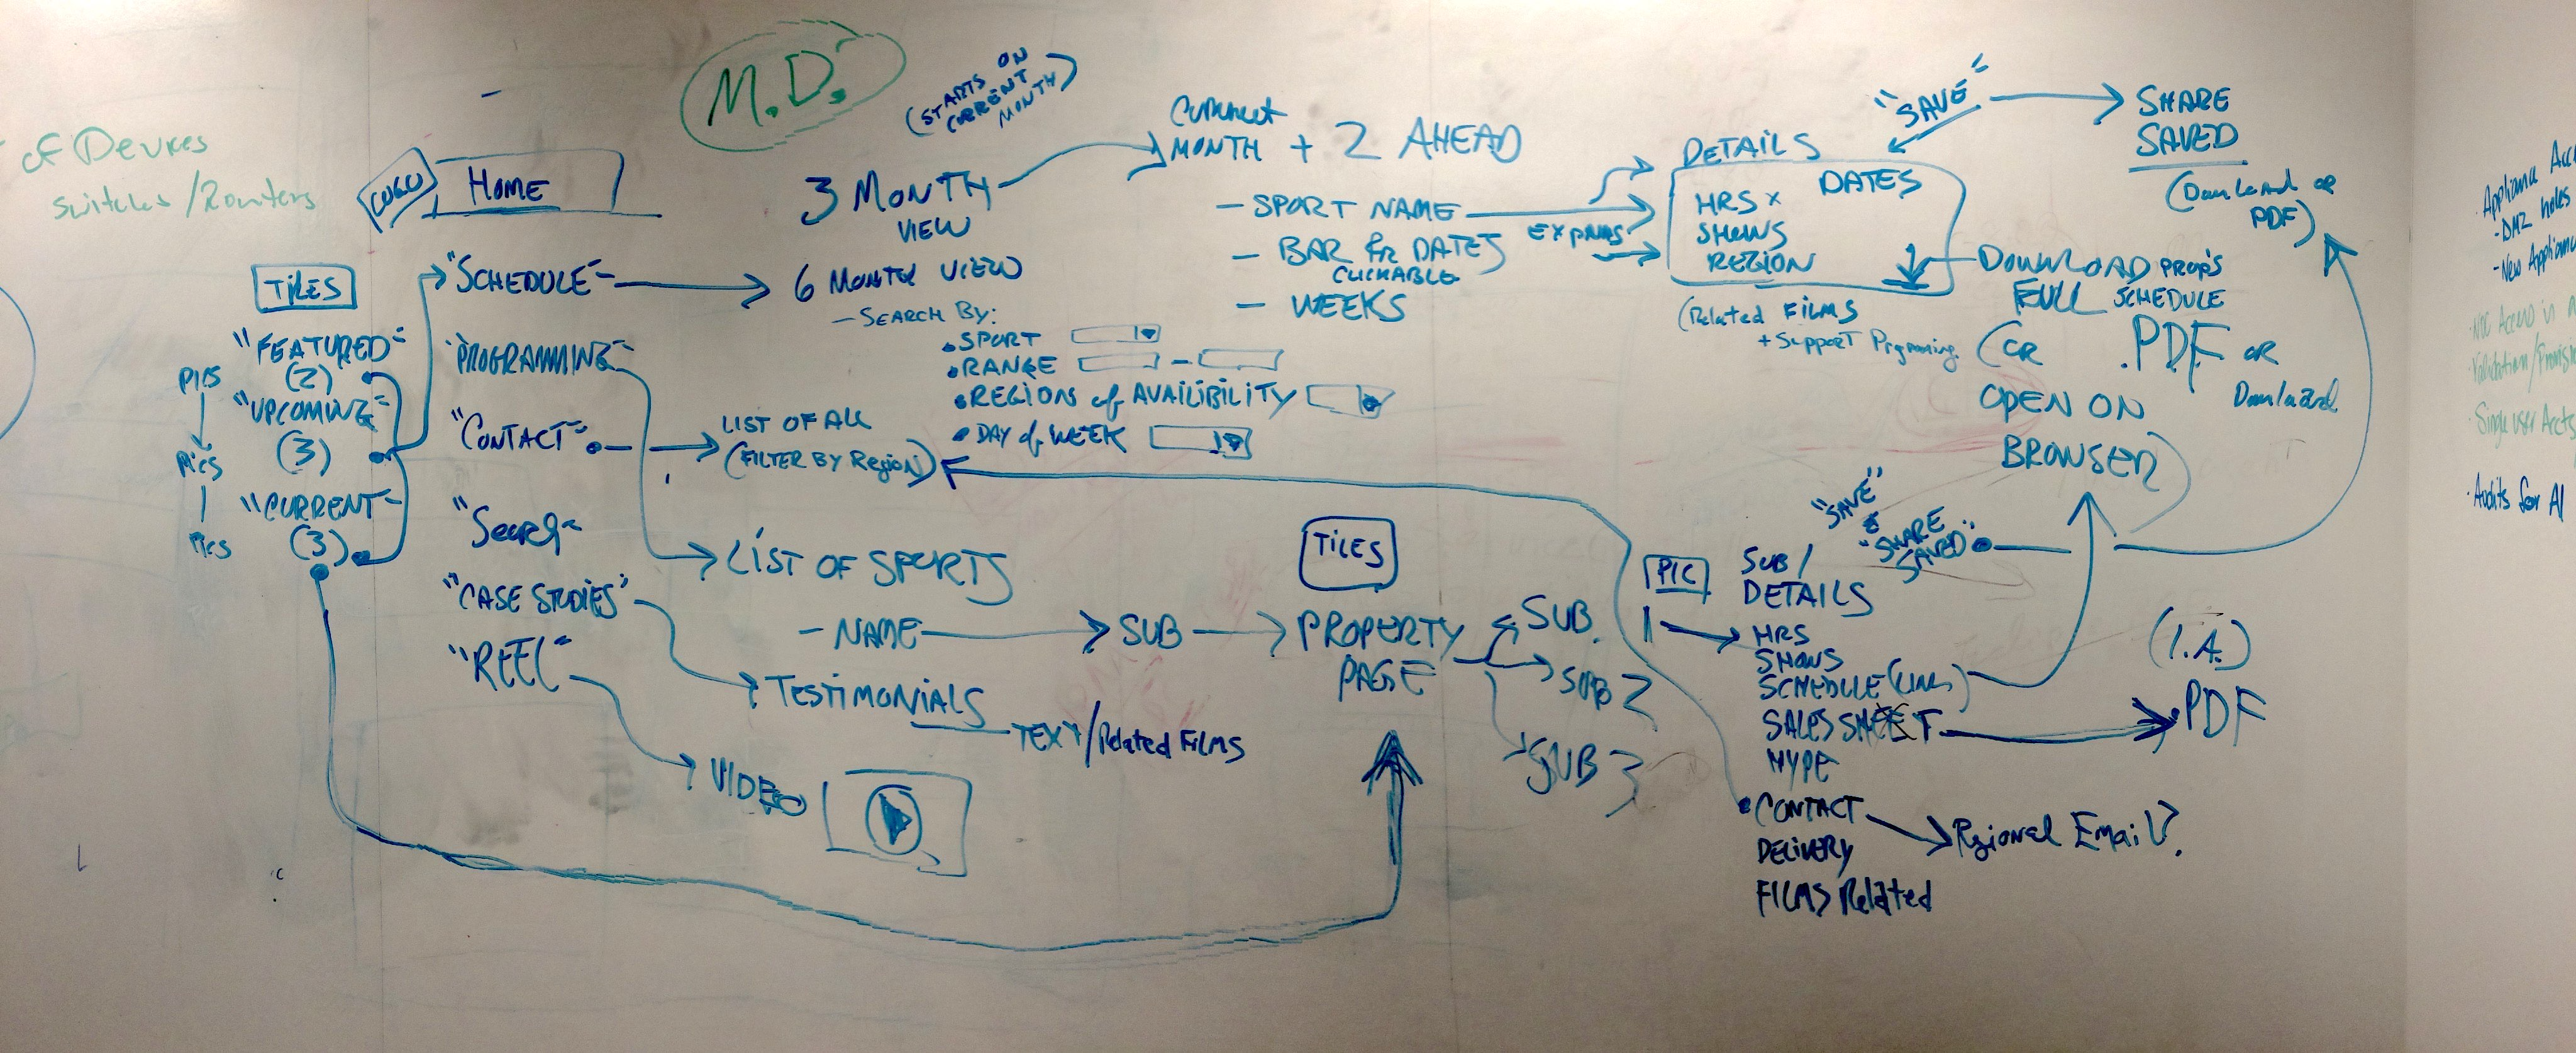 of Devices
Switches/Routers
M.D.
(STARTS ON
CURRENT
MONTH)
LOGO
HOME
TILES
"FEATURED"
(2)
"UPCOMING"
(3)
"CURRENT"
(3)
PICS
PICS
PICS
"SCHEDULE"
"PROGRAMMING"
"CONTACT"
"Search"
"CASE STUDIES"
"REEL"
3 MONTH
VIEW
6 MONTH VIEW
- SEARCH BY:
• SPORT
• RANGE
• REGIONS of AVAILIBILITY
• DAY of WEEK
LIST OF ALL
(FILTER BY Region)
LIST OF SPORTS
- NAME
SUB
TESTIMONIALS
TEXT/Related FILMS
VIDEO
Current
MONTH + 2 AHEAD
- SPORT NAME
- BAR for DATES
CLICKABLE
- WEEKS
EXPANDS
DETAILS
DATES
HRS x
SHOWS
REGION
(Related FILMS
+ Support Programing
"SAVE"
SHARE
SAVED
(Download or
PDF)
DOWNLOAD PROP'S
FULL SCHEDULE
(OR .PDF OR
Download
OPEN ON
BROWSER
TILES
PROPERTY
PAGE
SUB.
SUB 2
SUB 3
PIC
SUB/
DETAILS
"SAVE"
"SHARE
SAVED"
HRS
SHOWS
SCHEDULE (LINK)
SALES SHEET
HYPE
• CONTACT
DELIVERY
FILMS Related
Regional Email?
(I.A.)
.PDF
· Appliance Acc
- DMZ holes
- New Appliance
· Single user Accts
· Audits for AI